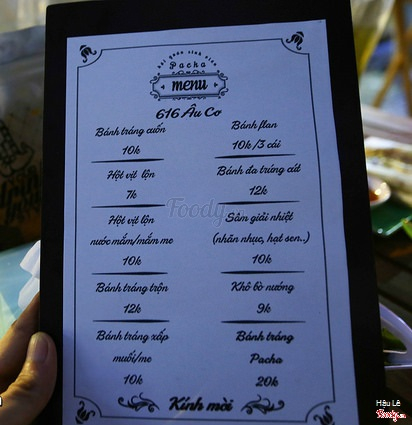 hai guốc sinh viên
Pacha
menu
616 Âu Cơ
Bánh tráng cuốn
10k
Hột vịt lộn
7k
Hột vịt lộn
nước mắm/mắm me
10k
Bánh tráng trộn
12k
Bánh tráng xấp
muối/me
10k
Bánh flan
10k /3 cái
Bánh đa trứng cút
12k
Sâm giải nhiệt
(nhãn nhục, hạt sen..)
10k
Khô bò nướng
9k
Bánh tráng
Pacha
20k
Kính mời
Foody
Hậu Lê
Foody.vn